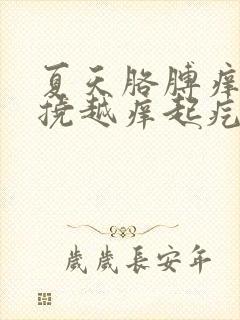 夏天胳膊痒
挠越痒起疙
歲歲長安年